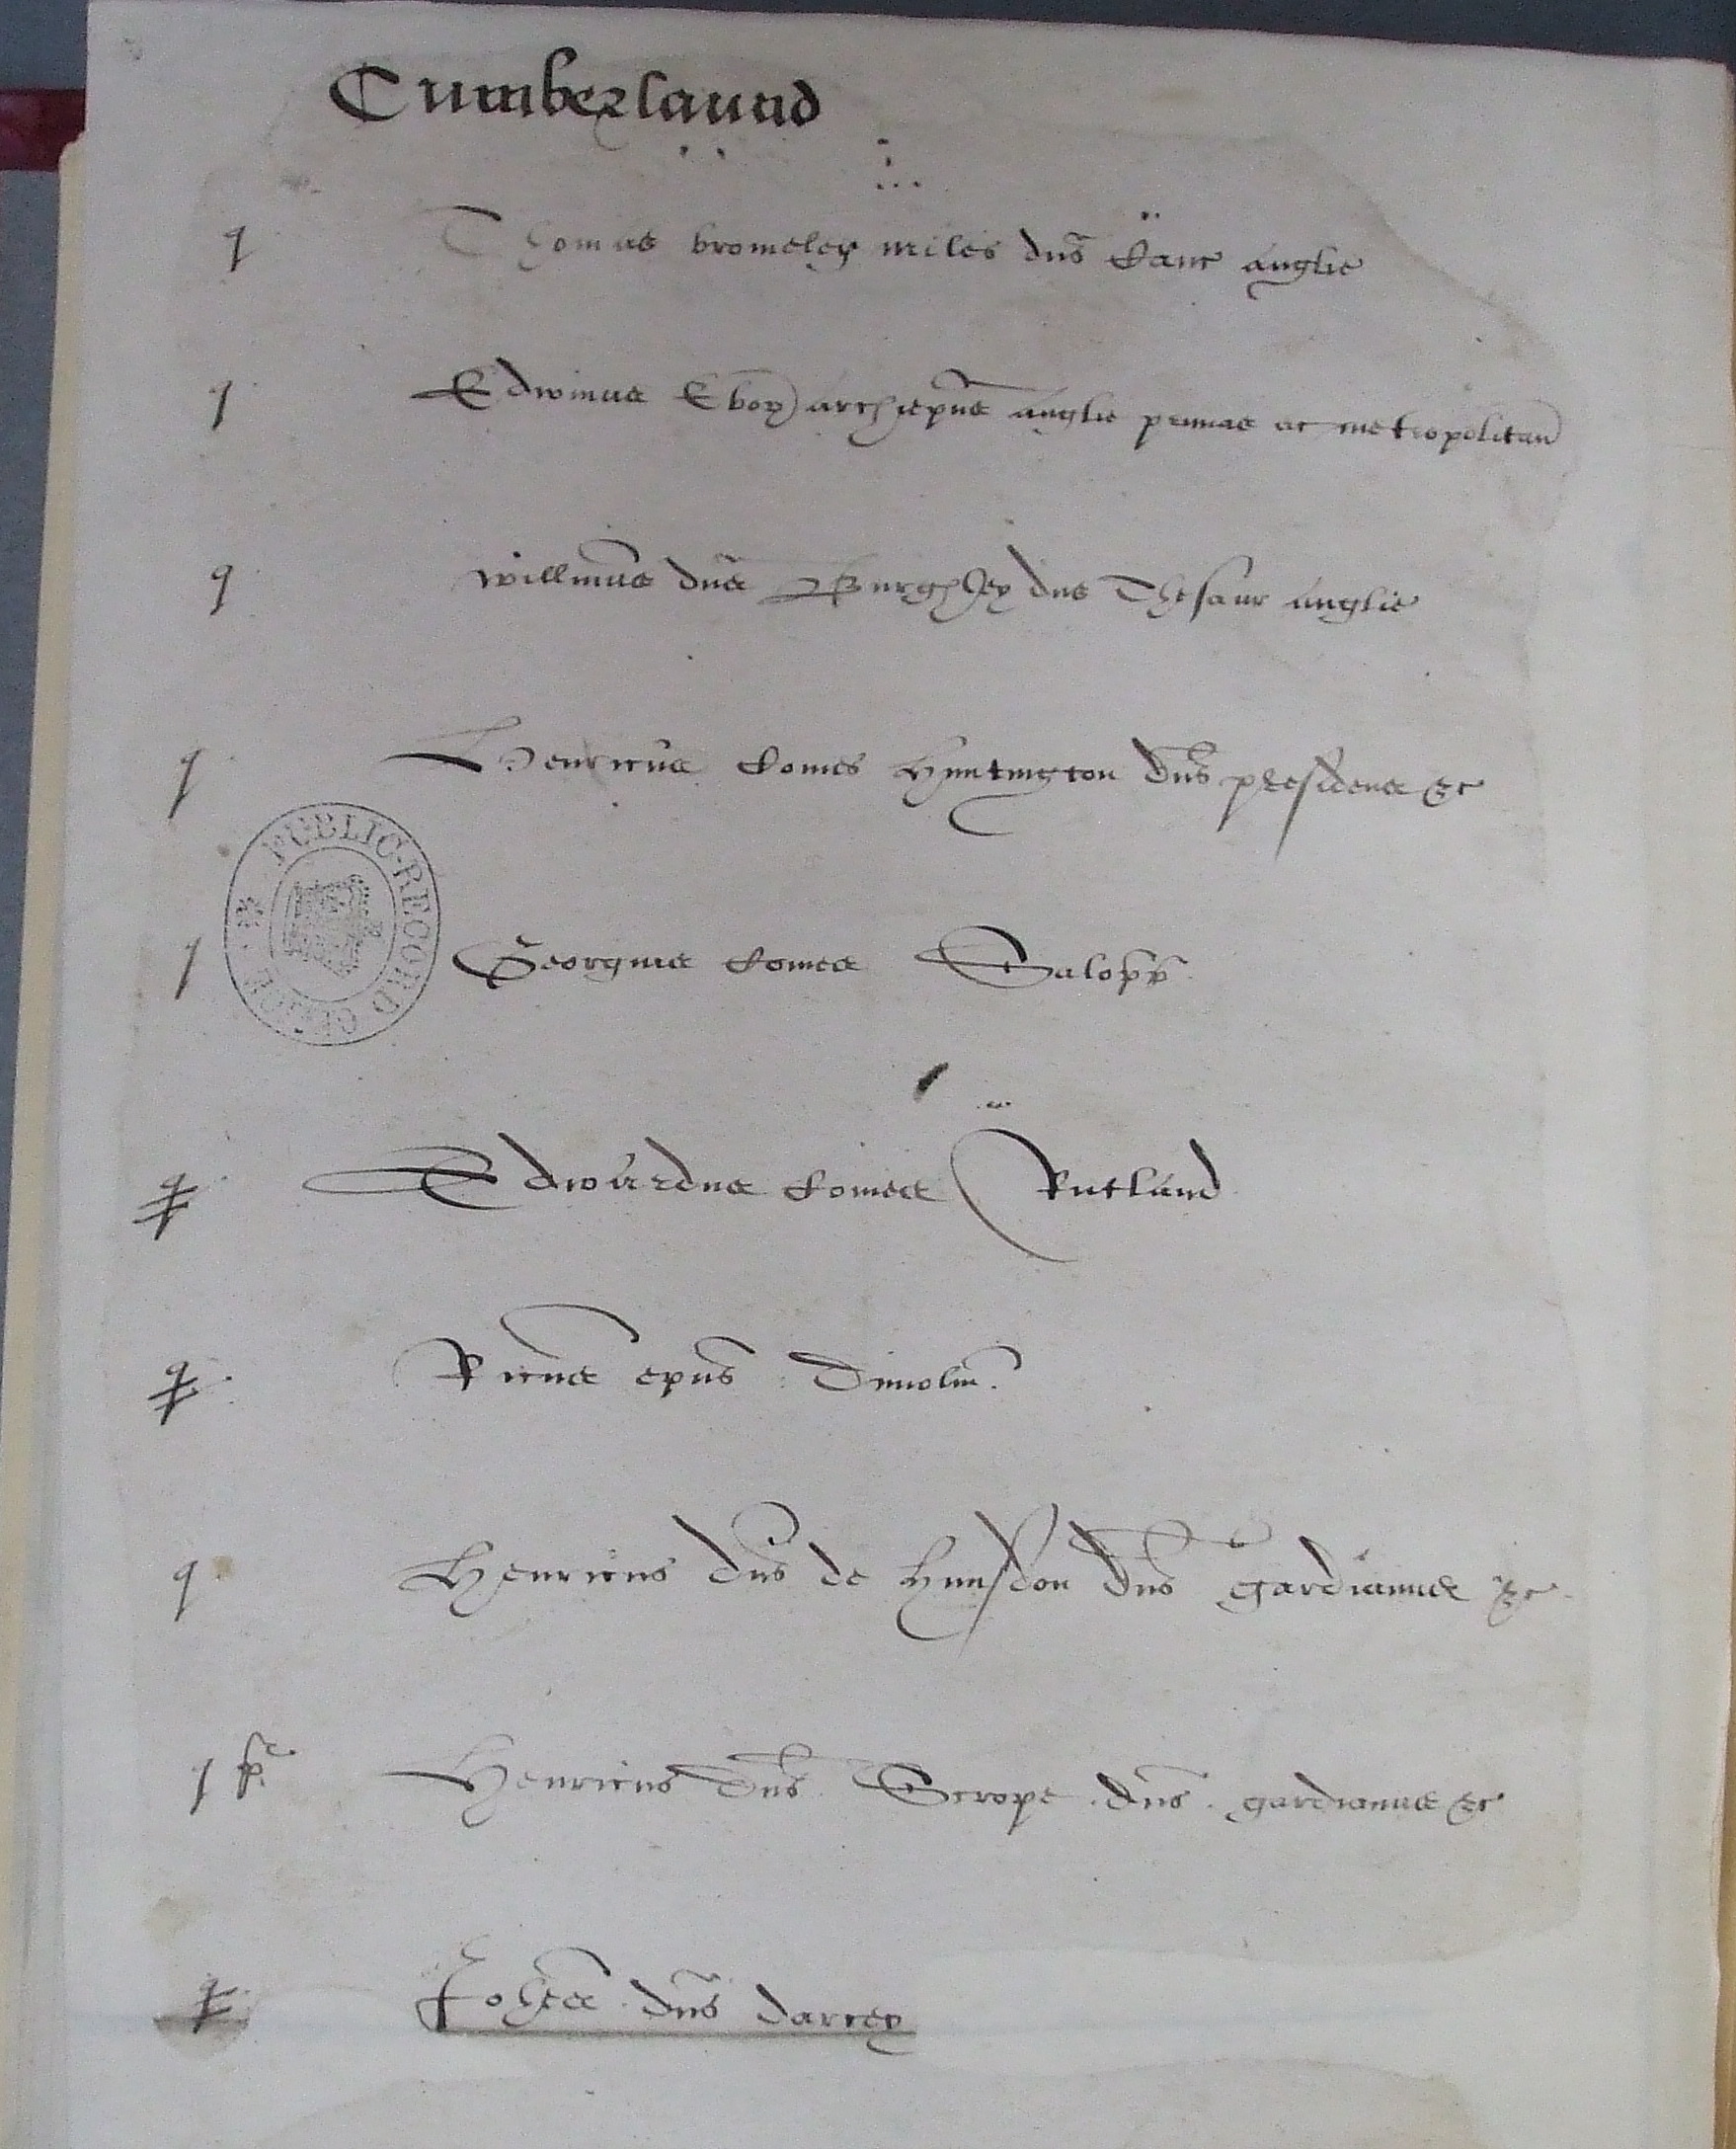 Cumberlaund
q Thomas bromeley miles dns Canc anglie
q Edwinus Ebor archiepus anglie primas ac metropolitan
q Willmus dns Burghley dns Thesaur anglie
q Henricus Comes Huntington dns presidens &c
PUBLIC RECORD OFFICE
q Georgius Comes Salopp
q Edwardus Comes Rutland
q Ricus epus Dunolm.
q Henricus dns de Hunsdon dns gardianus &c
q Henricus dns Scrope dns gardianus &c
q Johes dns darcey